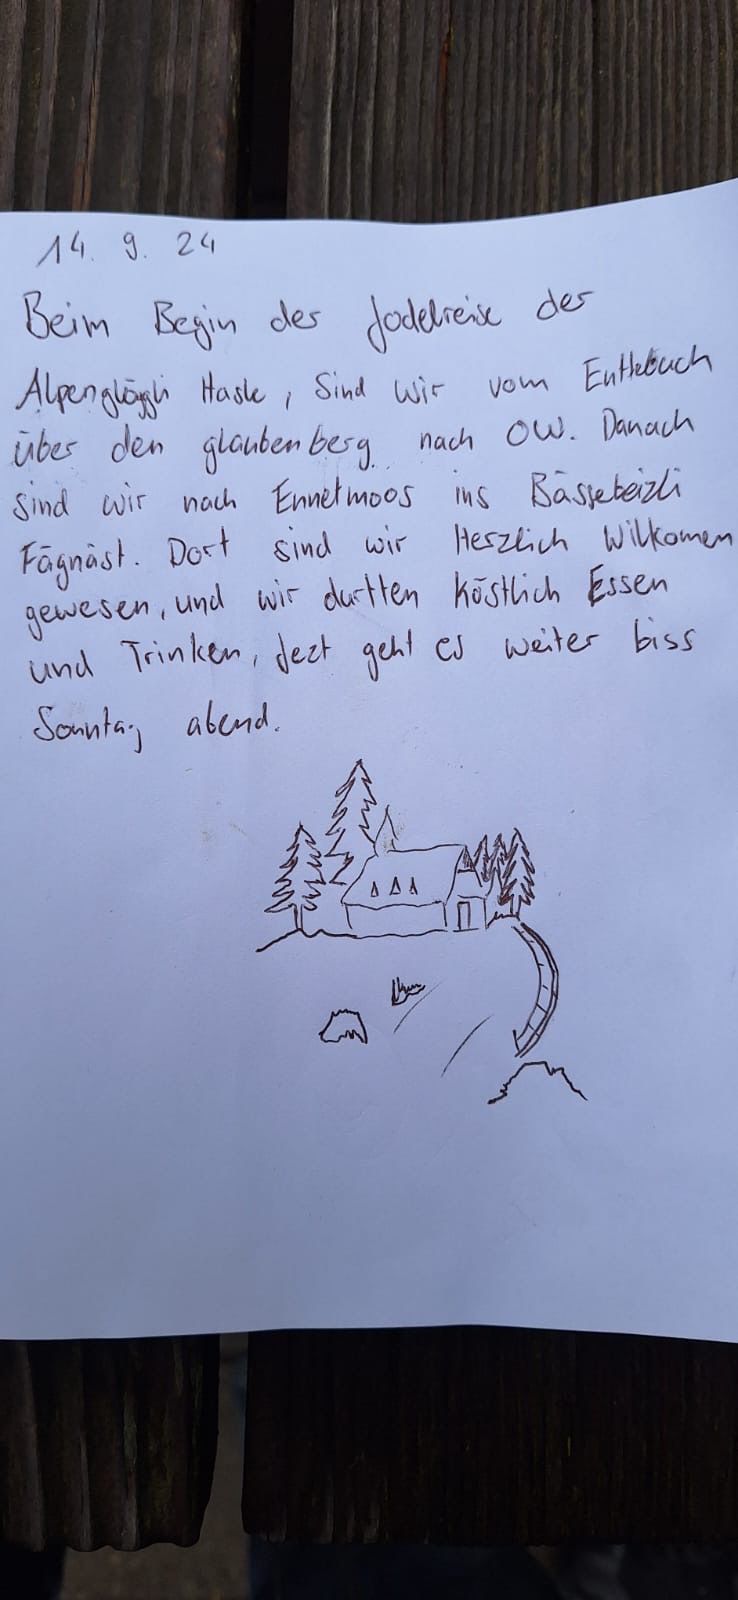 14. 9. 24
Beim Begin der Jodelreise der
Alpenglöggli Hasle, Sind Wir vom Entlebuch
über den glaubenberg nach OW. Danach
Sind wir nach Ennetmoos ins Bässebeizli
Fägnäst. Dort sind wir Herzlich Wilkomen
gewesen, und wir durften köstlich Essen
und Trinken, Jezt geht es weiter biss
Sonntag abend.